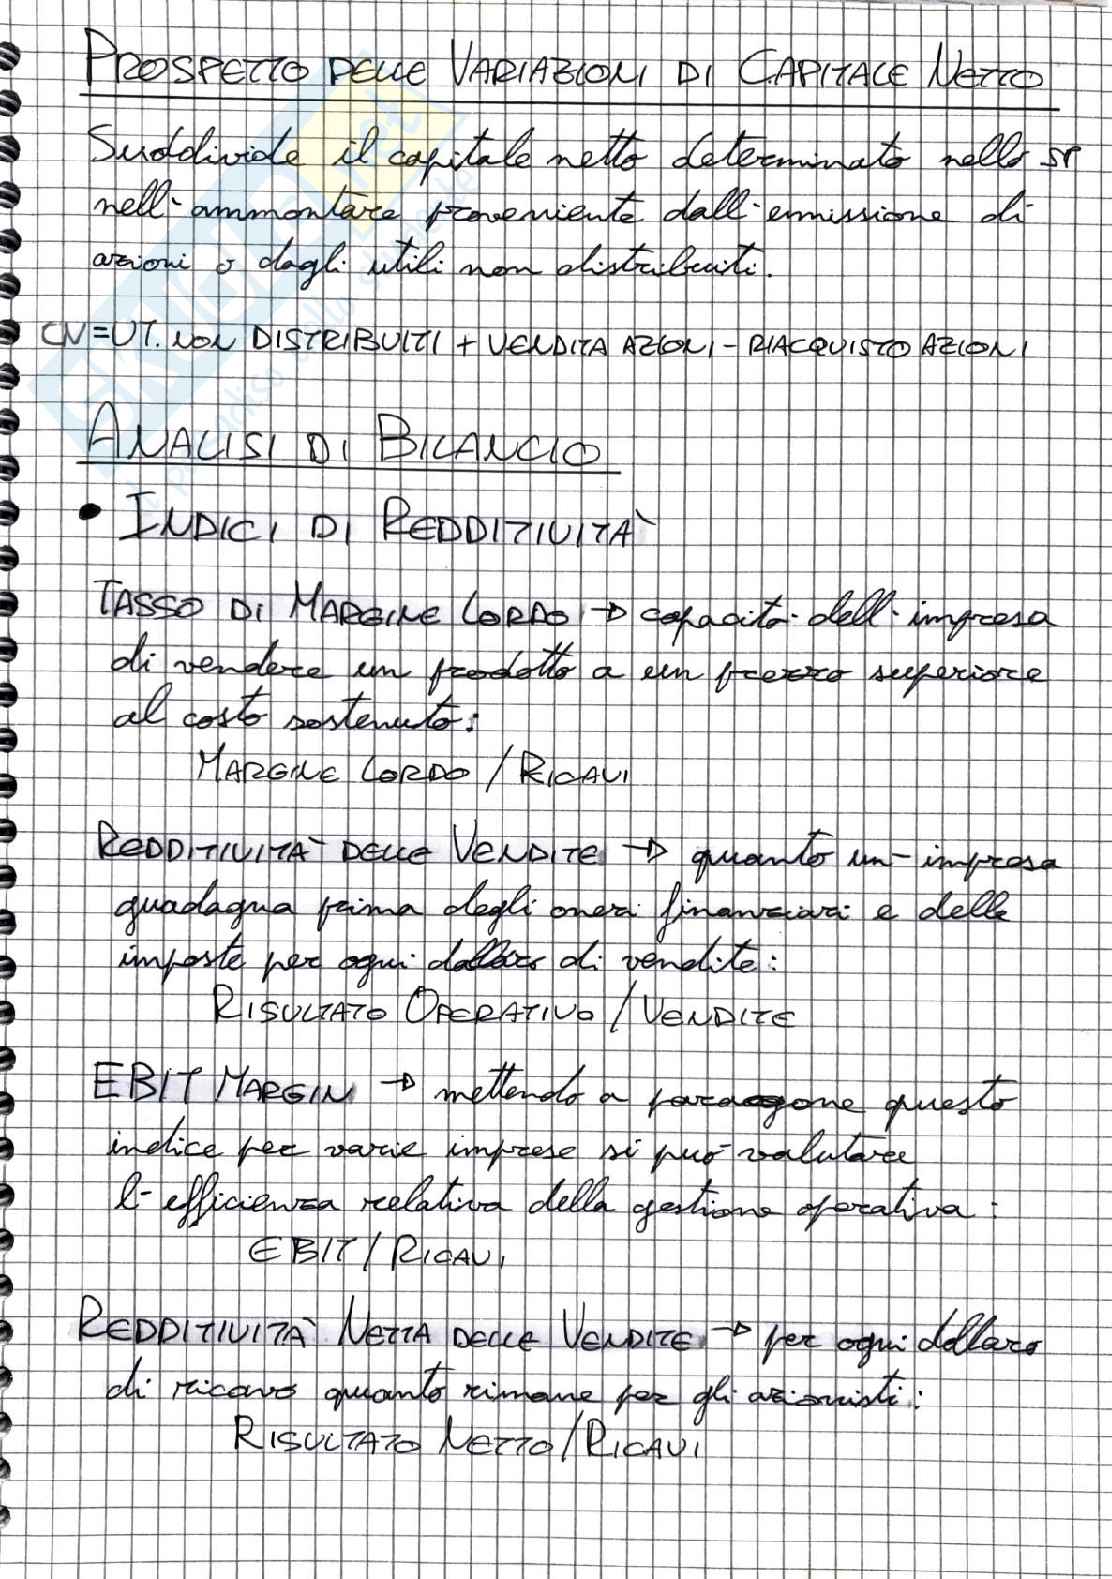 PROSPETTO DELLE VARIAZIONI DI CAPITALE NETTO
Suddivide il capitale netto determinato nello SP
nell'ammontare proveniente dall'emissione di
azioni o dagli utili non distribuiti.
CN=UT. NON DISTRIBUITI + VENDITA AZIONI - RIACQUISTO AZIONI
ANALISI DI BILANCIO
• INDICI DI REDDITIVITÀ
TASSO DI MARGINE LORDO → capacità dell'impresa
di vendere un prodotto a un prezzo superiore
al costo sostenuto:
MARGINE LORDO / RICAVI
REDDITIVITÀ DELLE VENDITE → quanto un'impresa
guadagna prima degli oneri finanziari e delle
imposte per ogni dollaro di vendite:
RISULTATO OPERATIVO / VENDITE
EBIT MARGIN → mettendo a paragone questo
indice per varie imprese si può valutare
l'efficienza relativa della gestione operativa:
EBIT / RICAVI
REDDITIVITÀ NETTA DELLE VENDITE → per ogni dollaro
di ricavo quanto rimane per gli azionisti:
RISULTATO NETTO / RICAVI